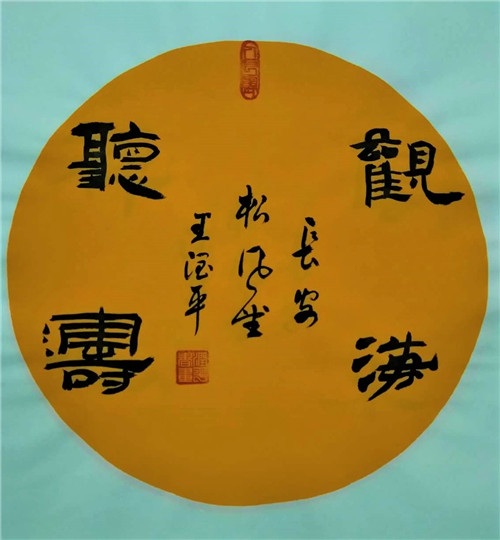 觀海
聽濤
長安
松風堂
王治平